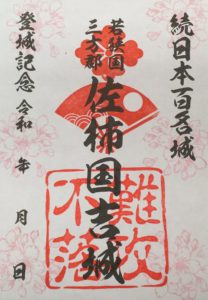 続日本百名城
若狭国
三方郡
佐柿国吉城
難攻
不落
登城記念
令和 年 月 日